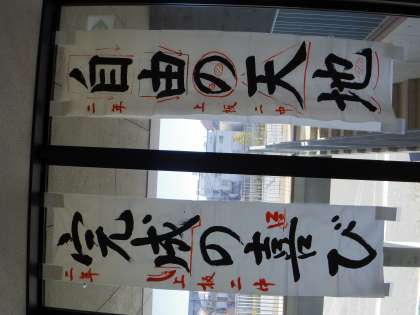 自由の天地
二年 上坂二中
完成の喜び
二年 上坂二中